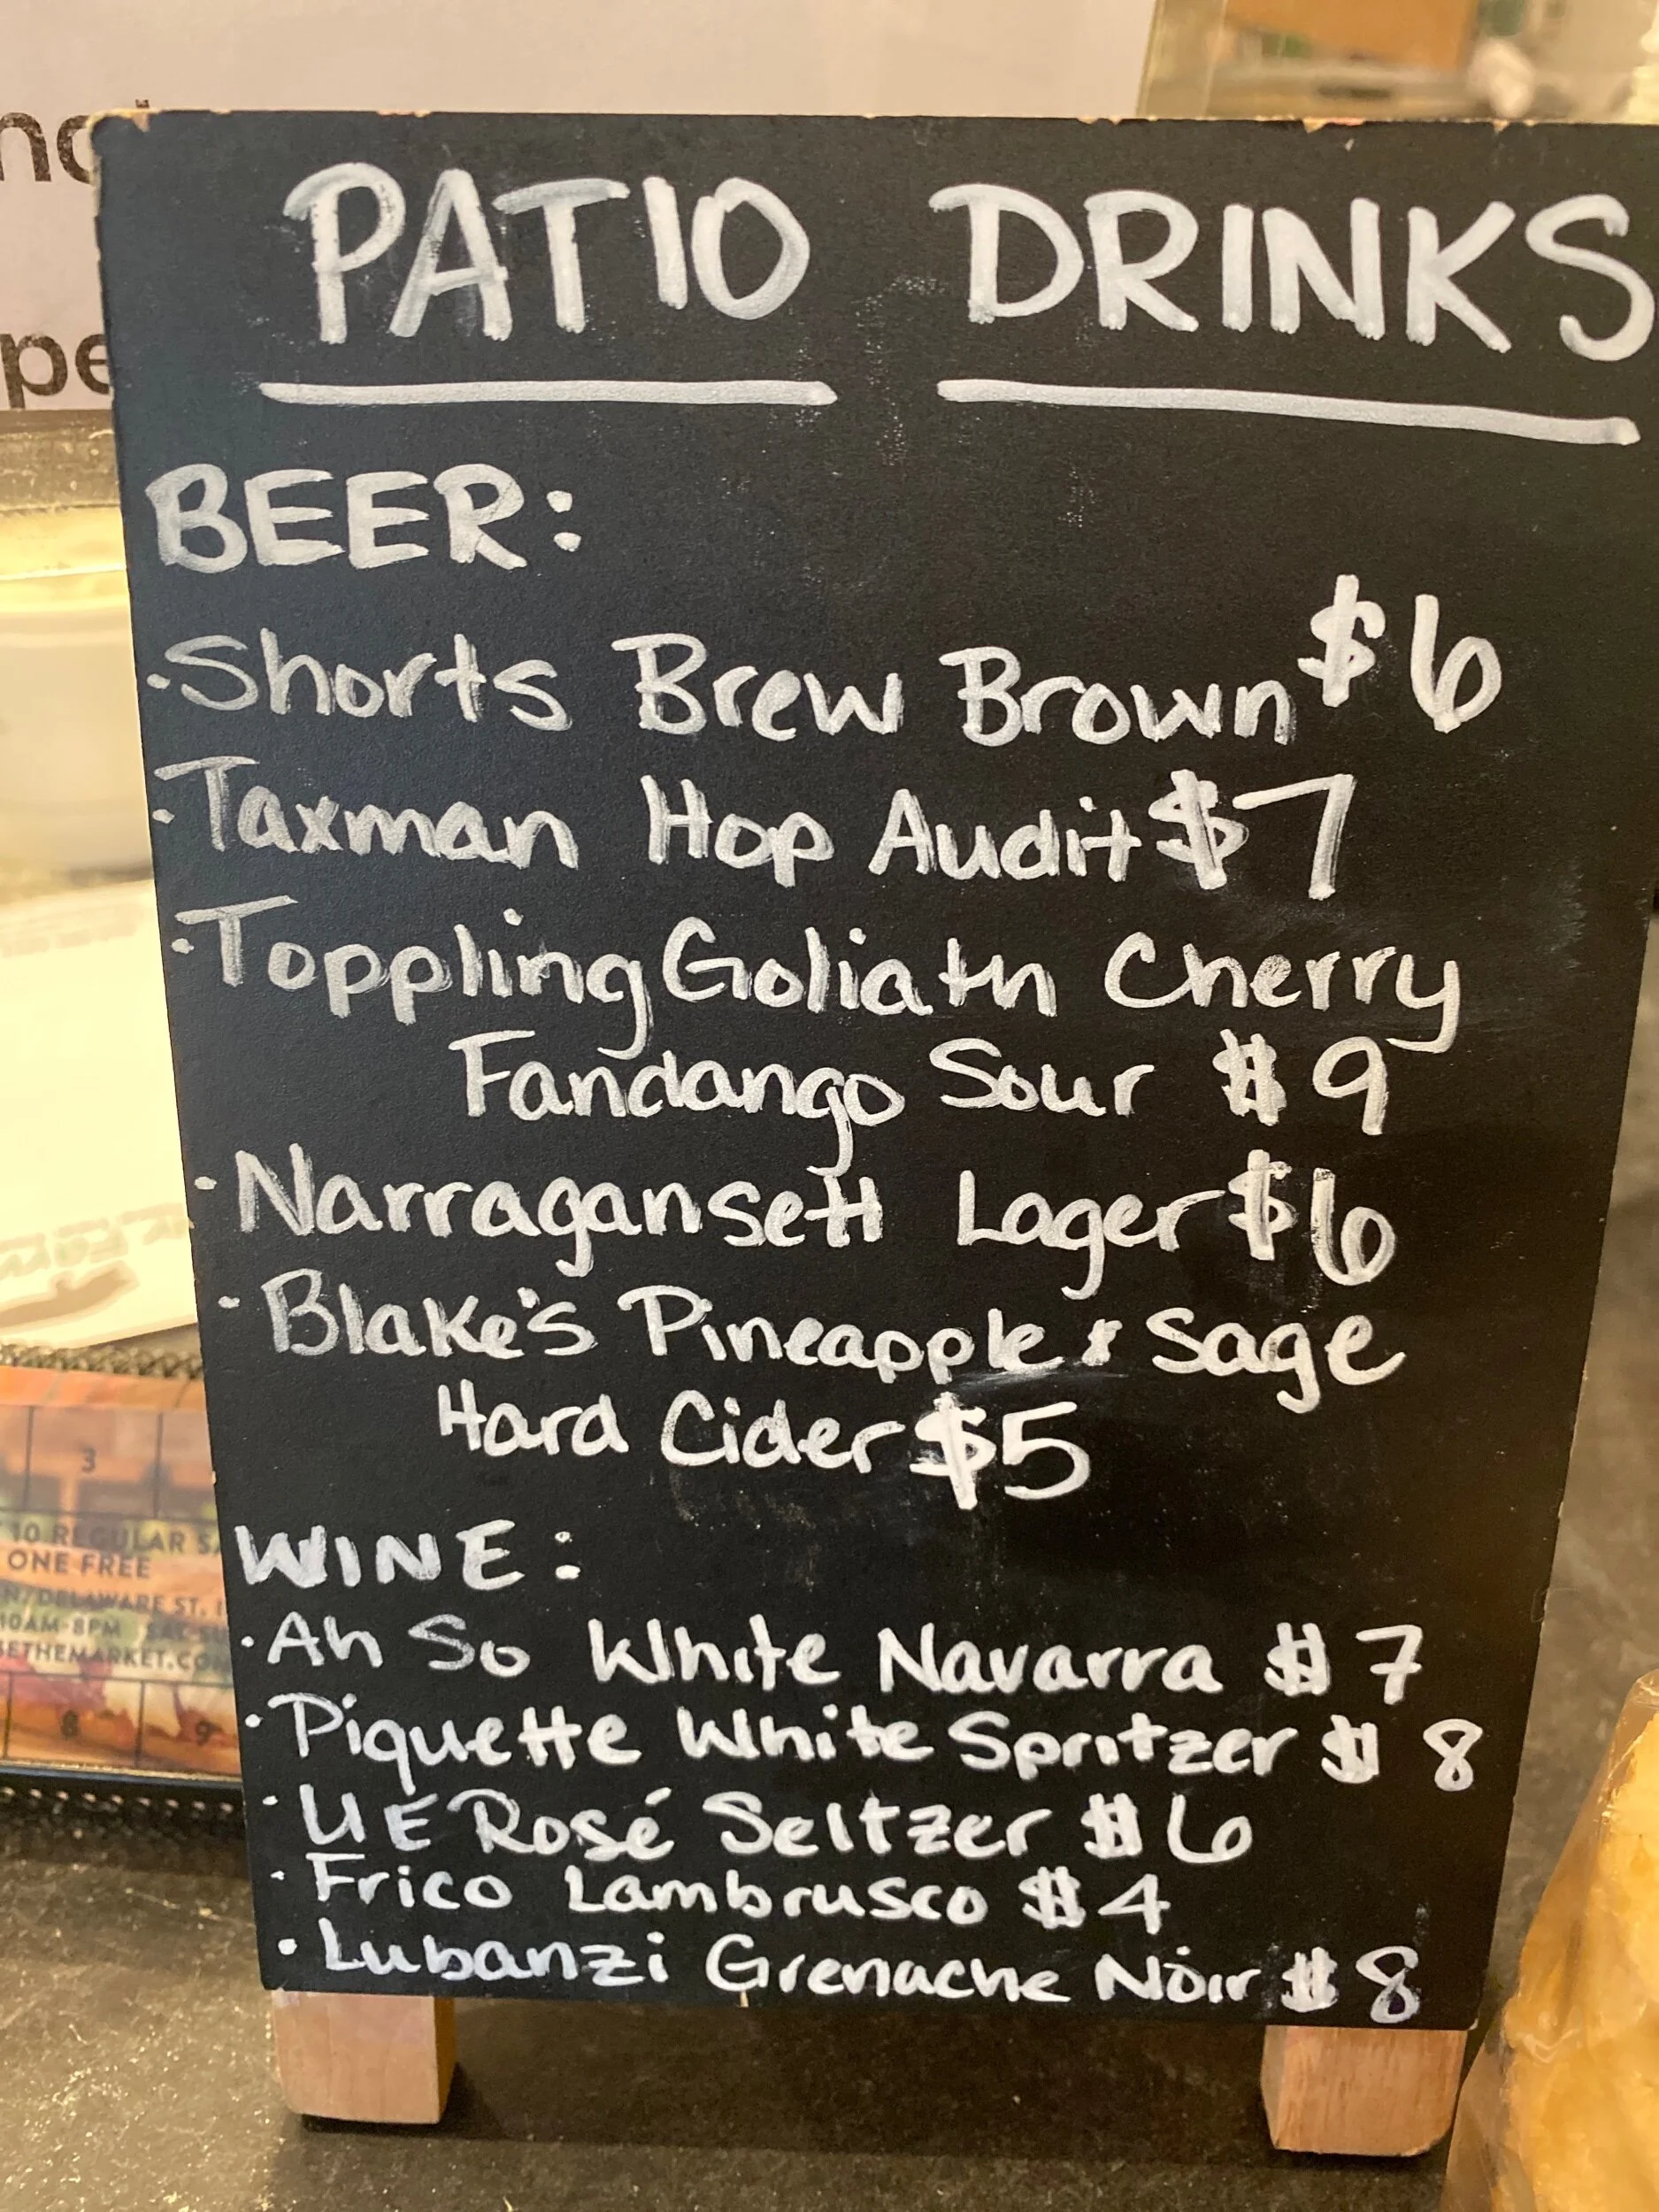 PATIO DRINKS
BEER:
·Shorts Brew Brown $6
·Taxman Hop Audit $7
·Toppling Goliath Cherry
Fandango Sour $9
·Narragansett Lager $6
·Blake's Pineapple & Sage
Hard Cider $5
WINE:
·Ah So White Navarra $7
·Piquette White Spritzer $8
·UE Rosé Seltzer $6
·Frico Lambrusco $4
·Lubanzi Grenache Noir $8
3
10 REGULAR
ONE FREE
DELAWARE ST.
10AM-8PM
8 9